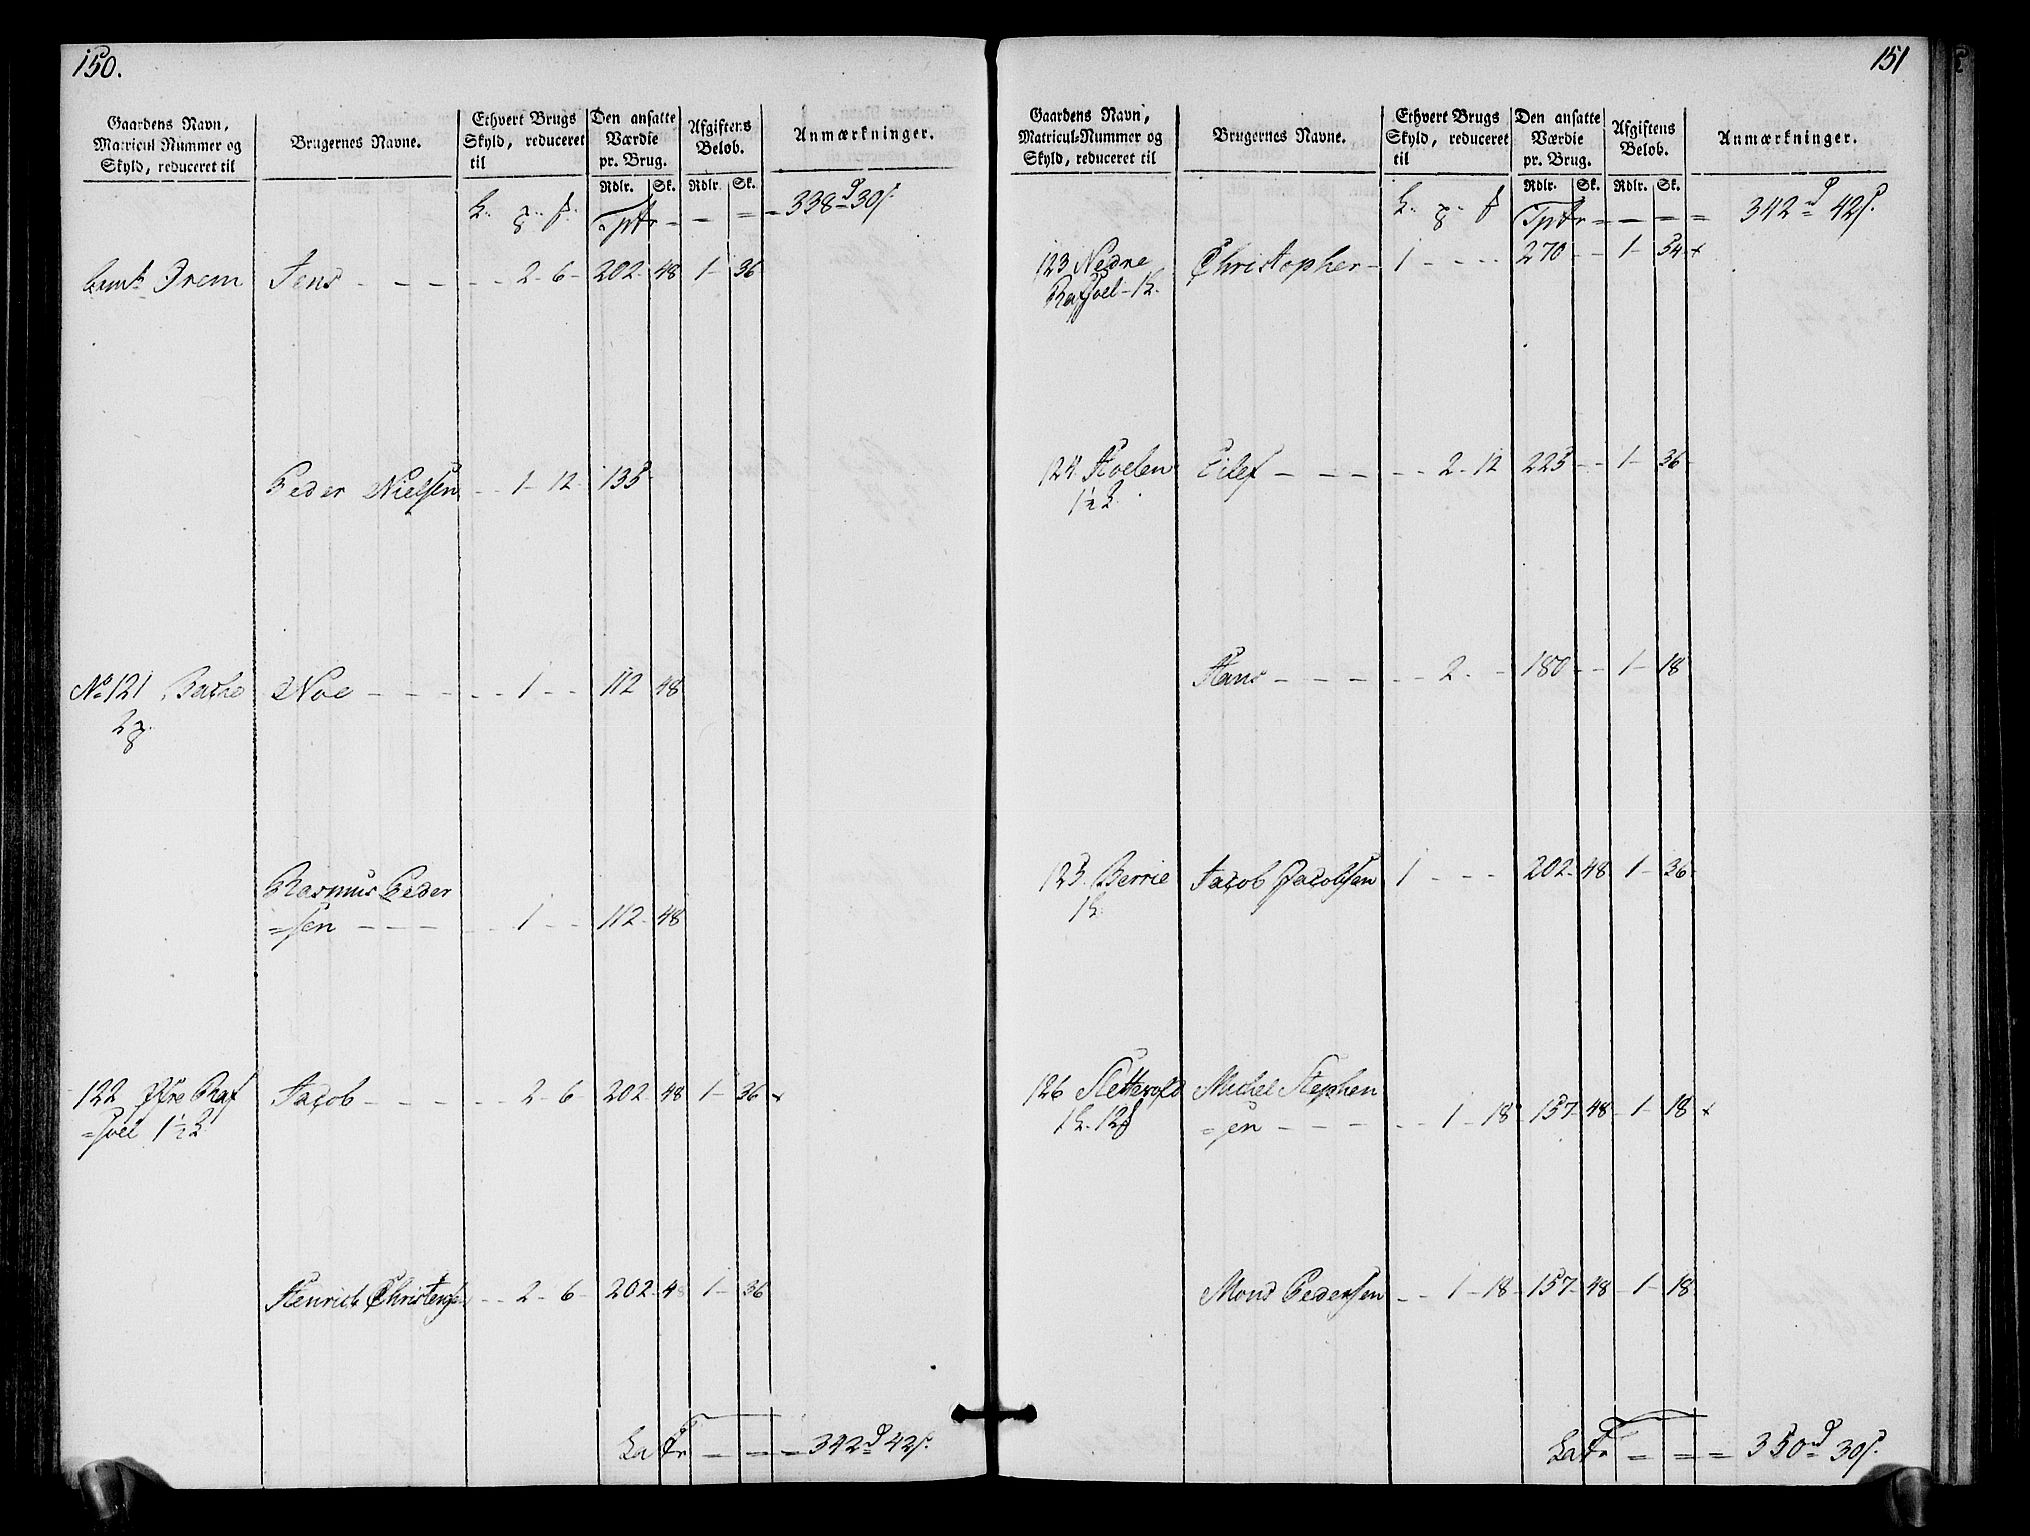 150.
Gaardens Navn, Matricul Nummer og Skyld, reduceret til
Brugernes Navne.
Ethvert Brugs Skyld, reduceret til
Den ansatte Værdie pr. Brug.
Afgiftens Beløb.
Anmærkninger.
Rdlr. Sk. Rdlr. Sk.
Tpfr = - = - 338 30
Drem Jens - - - - - 2 - 6 - 202 - 48 1 - 36
Peder Nielsen - - 1 - 12 - 135 -
No 121 Bache Noe - - - - - 1 - - 112 48
2
Rasmus Peder
=sen - - - - 1 - - 112 - 48
122 Øfre Raf Jacob - - - - - 2 - 6 - 202 - 48 1 - 36 x
=soel 1½
Henrich Christensen - - 2 - 6 - 202 - 48 1 - 36
Latr - = - 342 42
151
Gaardens Navn, Matricul-Nummer og Skyld, reduceret til
Brugernes Navne.
Ethvert Brugs Skyld, reduceret til
Den ansatte Værdie pr. Brug.
Afgiftens Beløb.
Anmærkninger.
Rdlr. Sk. Rdlr. Sk.
Tpfr = - - - = 342 42
123 Nedre Christopher - 1 - - - - 270 - - 1 - 54 x
Rafsoel - 1
124 Hoelen Eilef - - - - - 2 - 12 225 - - 1 - 36 -
1½
Hans - - - - - - 2 - - 180 - - 1 - 18
125 Berrie Jacob Jacobsen 1 - - - 202 - 48 1 - 36 -
1
126 Sletterold Michel Stephen
1 12 =sen - - - - - 1 - 18 157 - 48 - 1 - 18 x
Mons Pedersen - - 1 - 18 - 157 - 48 - 1 - 18
Latr = = = 350 30